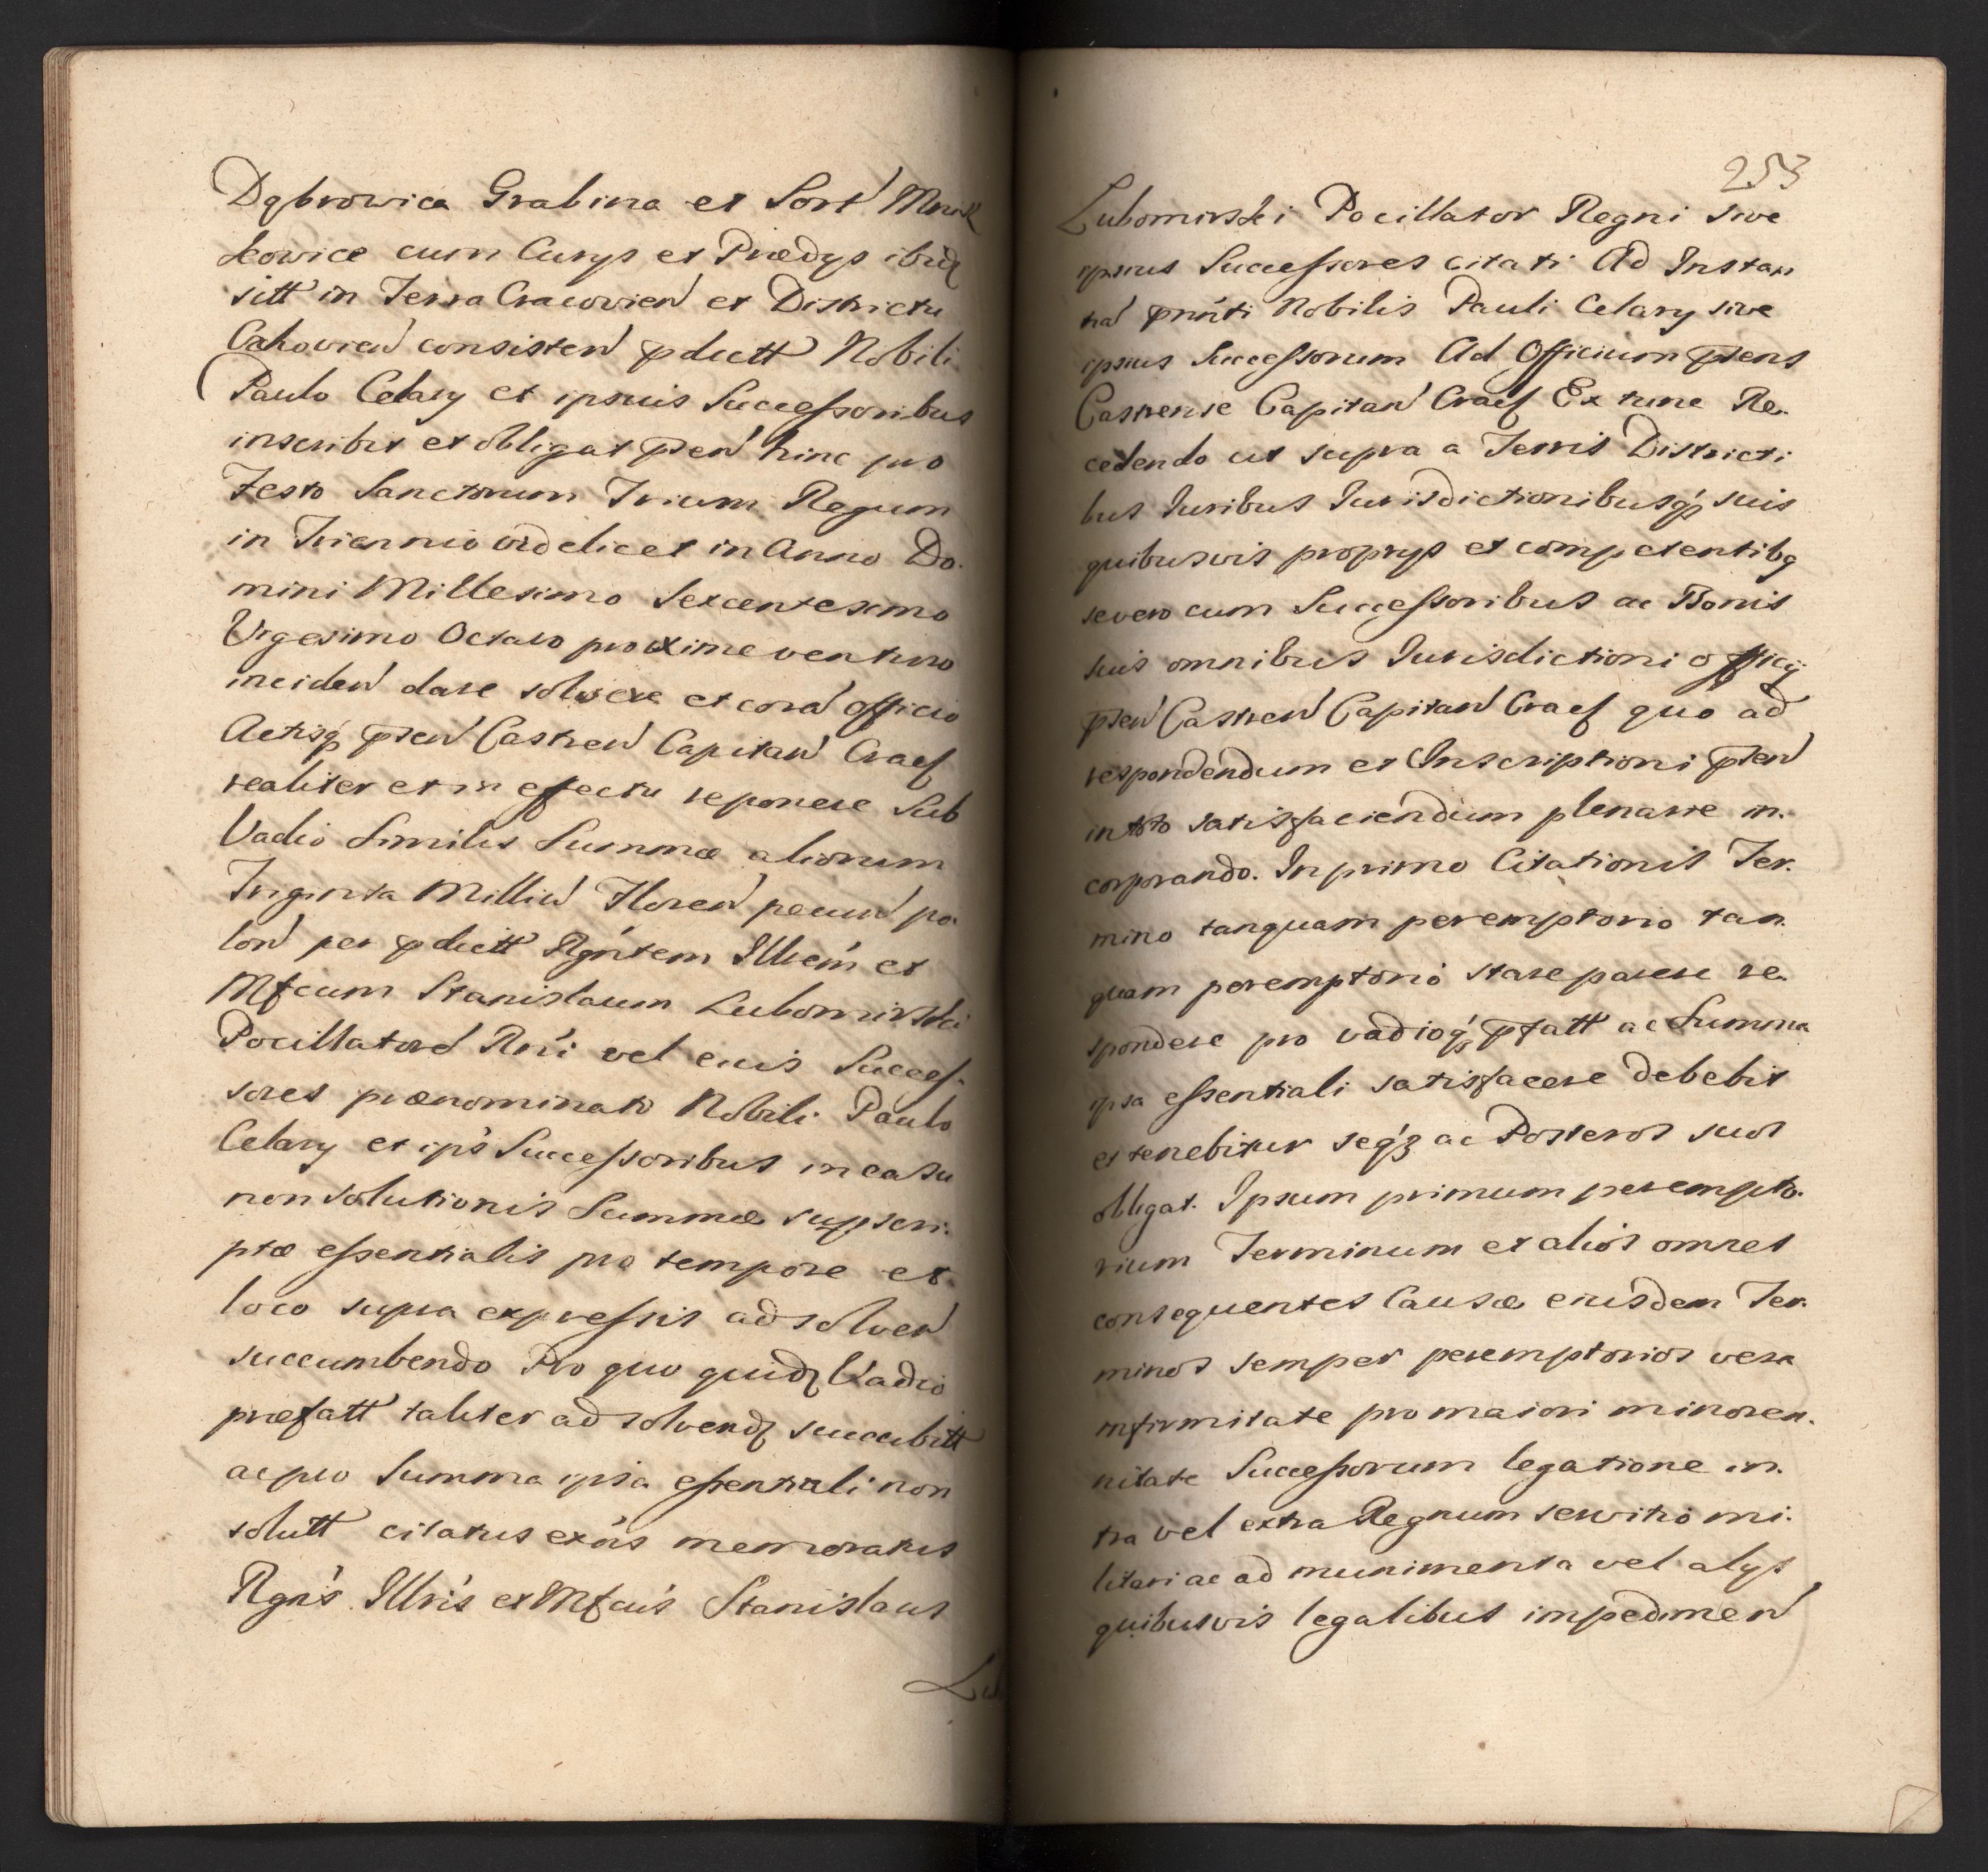 Dąbrowica Grabina et Sort Mnik
kowice cum Curys et Prædys ibidꝫ
sitt in Terra Cracovien et Districtu
Czchovien consisten pductt Nobili
Paulo Celary et ipsius Successoribus
inscribit et obligat pten hinc pro
Festo Sanctorum Trium Regum
in Triennio videlicet in Anno Do.
mini Millesimo Sexcentesimo
Vigesimo Octavo proxime venturo
inciden dare solvere et cora officio
Actisq pten Castren Capitan Cracꝭ
realiter et in effectu reponere Sub
Vadio Similis Summæ aliorum
Triginta Milliu Floren pecun po.
lon per pductt Rgntem Illrem et
Mfcum Stanislaum Lubomirski
Pocillatore Rni vel eius Succes.
sores prænominato Nobili Paulo
Celary et ips Successoribus in casu
non solutionis Summæ supscri.
ptæ essentialis pro tempore et
loco supra expressis ad solven
succumbendo Pro quo quidꝫ Vadio
præfatt taliter ad solvendꝫ succubitt
ac pro Summa ipsa essentiali non
solutt citatus exns memoratus
Rgns Illris et Mfcus Stanislaus
Lub
253
Lubomirski Pocillator Regni sive
ipsius Successores citati Ad Instan
tia prnti Nobilis Pauli Celary sive
ipsius Successorum Ad Officium ptens
Castrense Capitan Cracꝭ Ex tunc Re.
cedendo ut supra a Terris Districti
bus Iuribus Iurisdictionibusq suis
quibusvis proprys et competentibq
se vero cum Successoribus ac Bonis
suis omnibus Iurisdictioni officij
pten Castren Capitan Cracꝭ quo ad
respondendum et Inscriptioni pten
in toto satisfaciendum plenarie in.
corporando. In primo Citationis Ter.
mino tanquam peremptorio tan.
quam peremptorio stare parere re.
spondere pro vadioq pfatt ac Summa
ipsa essentiali satisfacere debebit
et tenebitur seqꝫ ac Posteros suos
obligat. Ipsum primum perempto.
rium Terminum et alios omnes
consequentes Causæ eiusdem Ter.
minos semper peremptorios vera
infirmitate pro maiori minoren.
nitate Successorum legatione in.
tra vel extra Regnum servitio mi.
litari ac ad munimenta vel alys
quibusvis legalibus impedimen